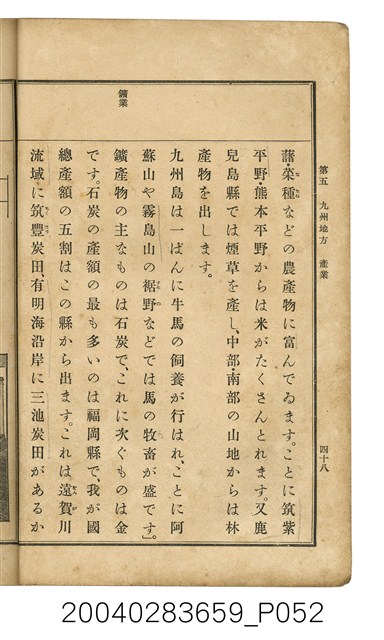 第五 九州地方 產業 四十八
藷・菜種などの農產物に富んでゐます。ことに筑紫
平野・熊本平野からは米がたくさんとれます。又鹿
兒島縣では煙草を產し、中部・南部の山地からは林
產物を出します。
九州島は一ぱんに牛馬の飼養が行はれ、ことに阿
蘇山や霧島山の裾野などでは馬の牧畜が盛です。
鑛業
鑛產物の主なものは石炭で、これに次ぐものは金
です。石炭の產額の最も多いのは福岡縣で、我が國
總產額の五割はこの縣から出ます。これは遠賀川
流域に筑豐炭田、有明海沿岸に三池炭田があるか
20040283659_P052